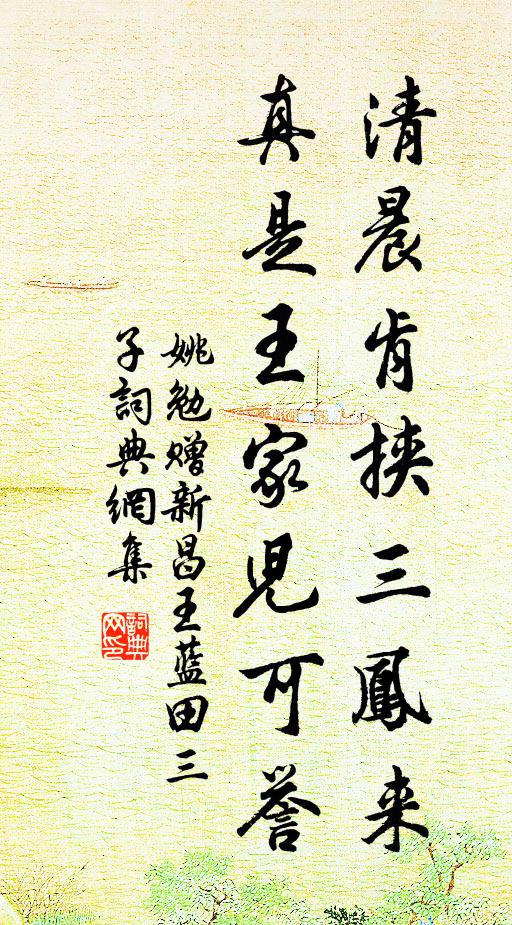 清晨肯挾三鳳来
真是王家児可誉
姚勉赠新昌王藍田三
子詞典網集
詞典
网印